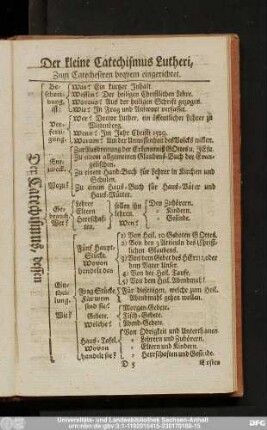 Der kleine Catechismus Lutheri,
Zum Catechesiren bequem eingerichtet.
Des Catechismus, dessen
Be-
schrei-
bung.
ist:
Was? Ein kurtzer Inhalt.
Wessen? Der heiligen Christlichen Lehre.
Woraus? Aus der heiligen Schrifft gezogen.
Wie? In Frag und Antwort verfasset.
Ver-
ferti-
gung.
Wer? Doctor Luther, ein öffentlicher Lehrer zu
Wittenberg.
Wenn? Im Jahr Christi 1529.
Warum? Um der Unwissenheit des Volcks willen.
End-
zweck.
Wozu?
Zu einem allgemeinen Glaubens-Buch der Evan-
gelischen.
Zu einem Hand-Buch für Lehrer in Kirchen und
Schulen.
Zu einem Haus-Buch für Haus-Väter und
Haus-Mütter.
Ge-
brauch.
Wer?
Lehrer
Eltern
Herrschaf-
ten
sollen ihn
lehren
Wen?
Den Zuhörern.
Kindern.
Gesinde.
Ein-
thei-
lung.
Wie?
Fünf Haupt-
Stücke.
Wovon
handeln den
1) Von Heil. 10 Geboten GOttes.
2) Von den 3 Articuln des Christ-
lichen Glaubens.
3) Von dem Gebet des HErrn, oder
dem Vater Unser.
4) Von der Heil. Taufe.
5) Von dem Heil. Abendmahl.
Frag-Stücke.
Für wem
sind sie?
Für diejenigen, welche zum Heil.
Abendmahl gehen wollen.
Gebete.
Welche?
Morgen-Gebete.
Tisch-Gebete.
Abend-Gebete.
Haus-Tafel.
Wovon
handelt sie?
Von Obrigkeit und Unterthanen
Lehrern und Zuhörern.
Eltern und Kindern.
Herrschafften und Gesinde.
D 5
Erstes
Universitäts- und Landesbibliothek Sachsen-Anhalt
DFG